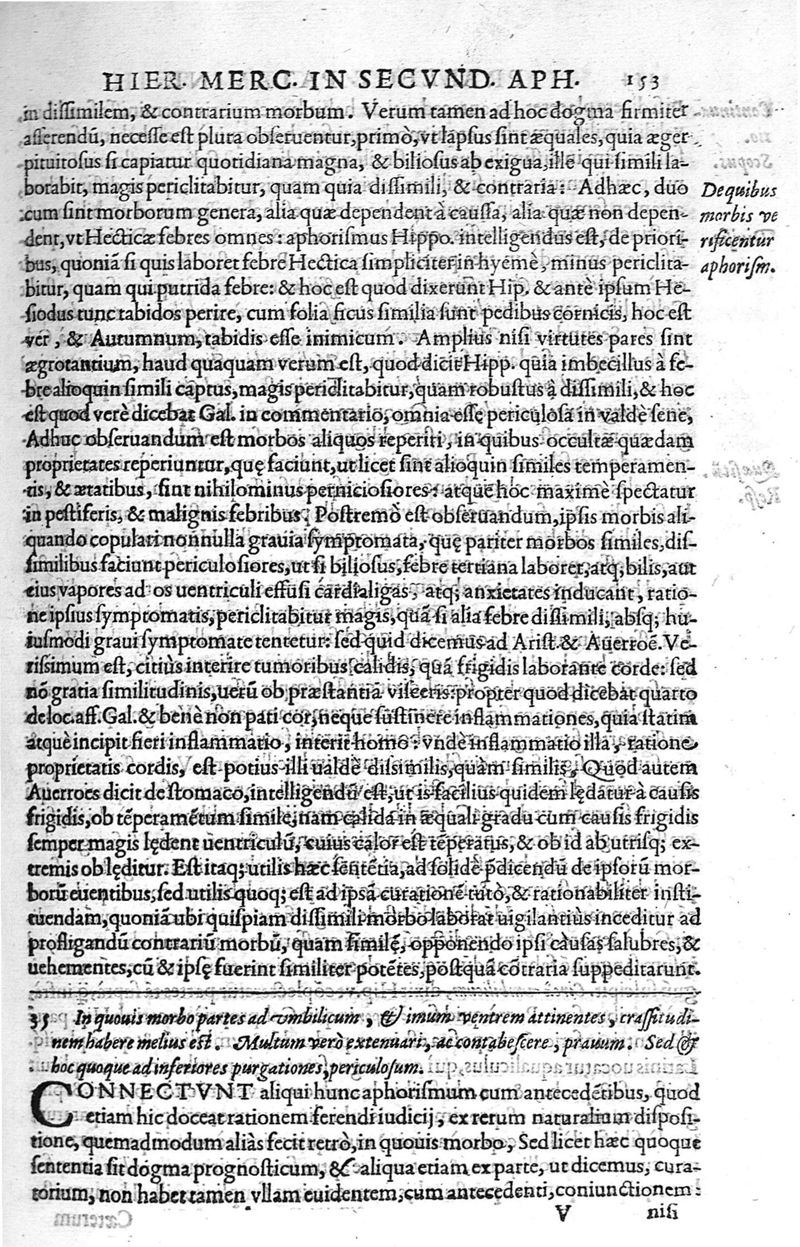 HIER. MERC. IN SECVND. APH. 153
in dissimilem, & contrarium morbum. Verum tamen ad hoc dogma firmiter
asserendũ, necesse est plura obseruentur, primò, vt lapsus sint æquales, quia æger
pituitosus si capiatur quotidiana magna, & biliosus ab exigua, ille qui simili la-
borabit, magis periclitabitur, quam quia dissimili, & contraria: Adhæc, duo
cum sint morborum genera, alia quæ dependent à caussa, alia quæ non depen-
dent, vt Hecticæ febres omnes: aphorismus Hippo. intelligendus est, de priori-
bus, quoniã si quis laboret febre Hectica simpliciter in hyeme, minus periclita-
bitur, quam qui putrida febre: & hoc est quod dixerunt Hip. & antè ipsum He-
siodus tunc tabidos perire, cum folia ficus similia sunt pedibus cornicis, hoc est
ver, & Autumnum, tabidis esse inimicum. Amplius nisi virtutes pares sint
ægrotantium, haud quaquam verum est, quod dicit Hipp. quia imbecillus à fe-
bre alioquin simili captus, magis periclitabitur, quam robustus à dissimili, & hoc
est quod verè dicebat Gal. in commentario, omnia esse periculosa in valdè sene,
Adhuc obseruandum est morbos aliquos reperiri, in quibus occultæ quædam
proprietates reperiuntur, quę faciunt, ut licet sint alioquin similes temperamen-
tis, & ætatibus, sint nihilominus perniciosiores: atque hoc maximè spectatur
in pestiferis, & malignis febribus. Postremò est obseruandum, ipsis morbis ali-
quando copulari nonnulla grauia symptomata, quę pariter morbos similes, dis-
similibus faciunt periculosiores, ut si biliosus, febre tertiana laboret, atq; bilis, aut
eius vapores ad os uentriculi effusi cardialgias, atq; anxietates inducant, ratio-
ne ipsius symptomatis, periclitabitur magis, quã si alia febre dissimili, absq; hu-
iusmodi graui symptomate tentetur: sed quid dicemus ad Arist. & Auerroẽ. Ve-
rissimum est, citius interire tumoribus calidis, quã frigidis laborante corde: sed
nõ gratia similitudinis, uerũ ob præstantiã visceris: propter quod dicebat quarto
de loc. aff. Gal. & benè non pati cor, neque sustinere inflammationes, quia statim
atquè incipit fieri inflammatio, interit homo: vndè inflammatio illa, ratione
proprietatis cordis, est potius illi ualdè dissimilis, quàm similis, Quod autem
Auerroes dicit de stomaco, intelligendũ est, ut is facilius quidem lędatur à causis
frigidis, ob tẽperamẽtum simile, nam calida in æquali gradu cum causis frigidis
semper magis lędent uentriculũ, cuius calor est tẽperatus, & ob id ab utrisq; ex-
tremis oblęditur. Est itaq; utilis hæc sentẽtia, ad solidè p̃dicendũ de ipsorũ mor-
borũ euentibus, sed utilis quoq; est ad ipsã curationẽ tutò, & rationabiliter insti-
tuendam, quoniã ubi quispiam dissimili morbo laborat uigilantius inceditur ad
profligandũ contrariũ morbũ, quam similẽ, opponendo ipsi causas salubres, &
uehementes, cũ & ipsę fuerint similiter potẽtes, postquã cõtraria suppeditarunt.
De quibus
morbis ve
rificentur
aphorism.
35 In quouis morbo partes ad vmbilicum, & imum ventrem attinentes, crassitudi-
nem habere melius est. Multum verò extenuari, ac contabescere, prauum. Sed &
hoc quoque ad inferiores purgationes, periculosum.
CONNECTVNT aliqui hunc aphorismum cum antecedẽtibus, quod
etiam hic doceat rationem ferendi iudicij, ex rerum naturalium disposi-
tione, quemadmodum aliàs fecit retrò, in quouis morbo, Sed licet hæc quoque
sententia sit dogma prognosticum, & aliqua etiam ex parte, ut dicemus, cura-
torium, non habet tamen vllam euidentem, cum antecedenti, coniunctionem:
V nisi